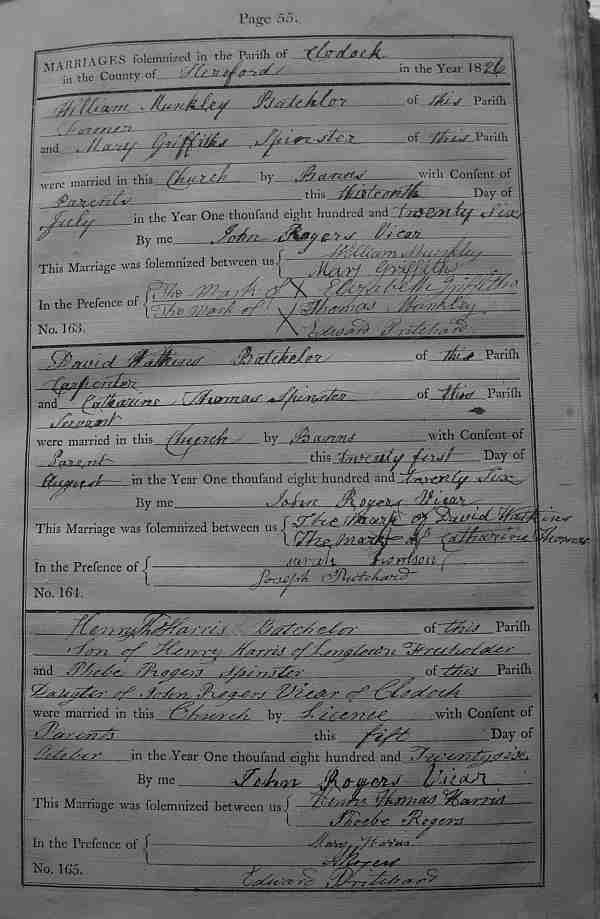 Page 55.
MARRIAGES solemnized in the Parish of Clodock
in the County of Hereford in the Year 1826
William Munkley Batchlor of this Parish
Farmer
and Mary Griffiths Spinster of this Parish
were married in this Church by Banns with Consent of
Parents this thirteenth Day of
July in the Year One thousand eight hundred and twenty Six
By me John Rogers Vicar
This Marriage was solemnized between us William Munkley
Mary Griffiths
In the Presence of The Mark of X Elizabeth Griffiths
The Mark of X Thomas Munkley
No. 163. Edward Pritchard
David Watkins Batchelor of this Parish
Carpenter
and Catharine Thomas Spinster of this Parish
Servant
were married in this Church by Banns with Consent of
Parent this twenty first Day of
August in the Year One thousand eight hundred and twenty Six
By me John Rogers Vicar
This Marriage was solemnized between us The mark of David Watkins
The mark of Catharine Thomas
In the Presence of Sarah
Joseph Pritchard
No. 164.
Henry Tho Harris Batchelor of this Parish
Son of Henry Harris of Longtown Freeholder
and Phebe Rogers Spinster of this Parish
Daugter of John Rogers Vicar of Clodock
were married in this Church by Licence with Consent of
Parents this fift Day of
October in the Year One thousand eight hundred and Twentysix
By me John Rogers Vicar
This Marriage was solemnized between us Henry Thomas Harris
Phoebe Rogers
In the Presence of Mary
Rogers
No. 165. Edward Pritchard